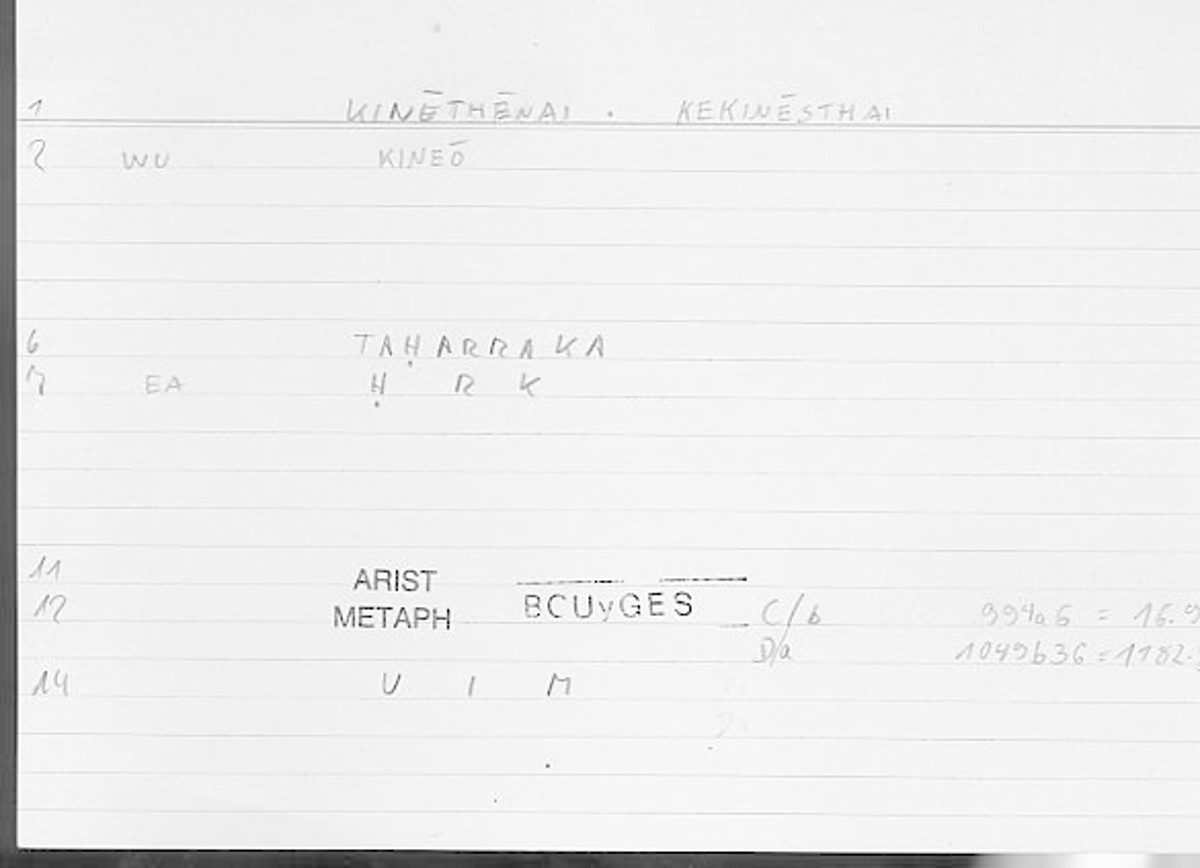 1 KINĒTHĒNAI . KEKINĒSTHAI
2 WU KINEŌ
6 TAḤARRAKA
7 EA Ḥ R K
11 ARIST
12 METAPH BCUyGES C/b 994a6 = 16.9
D/a 1049b36 = 1182.
14 U I M